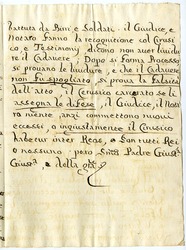 battuta da Birri e Soldati. il Giudice, e
Notaro fanno la recognitione col Cerusi-
co e Testimonij, dicono non aver lividu-
re il Cadavere, Dopo si forma Processo
si provano le lividure, e che il Cadavere
non fu spogliato si prova la falsità
dell'atto, il Cerusico carcerato se li
assegna le difese, il Giudice, il Nota-
ro niente, anzi commettono nuovi
eccessi, o ingiustamente il Cerusico
habetur inter Reos, o son tutti Rei
o nessuno, però
e della